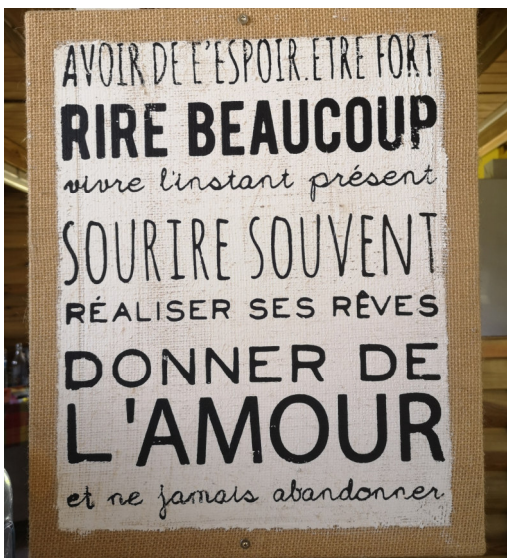 AVOIR DE L'ESPOIR.ETRE FORT
RIRE BEAUCOUP
vivre l'instant présent
SOURIRE SOUVENT
RÉALISER SES RÊVES
DONNER DE
L'AMOUR
et ne jamais abandonner